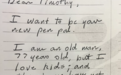 Dear Timothy,
I want to be your
new pen pal.
I am an old man,
77 years old, but I
love kids; and